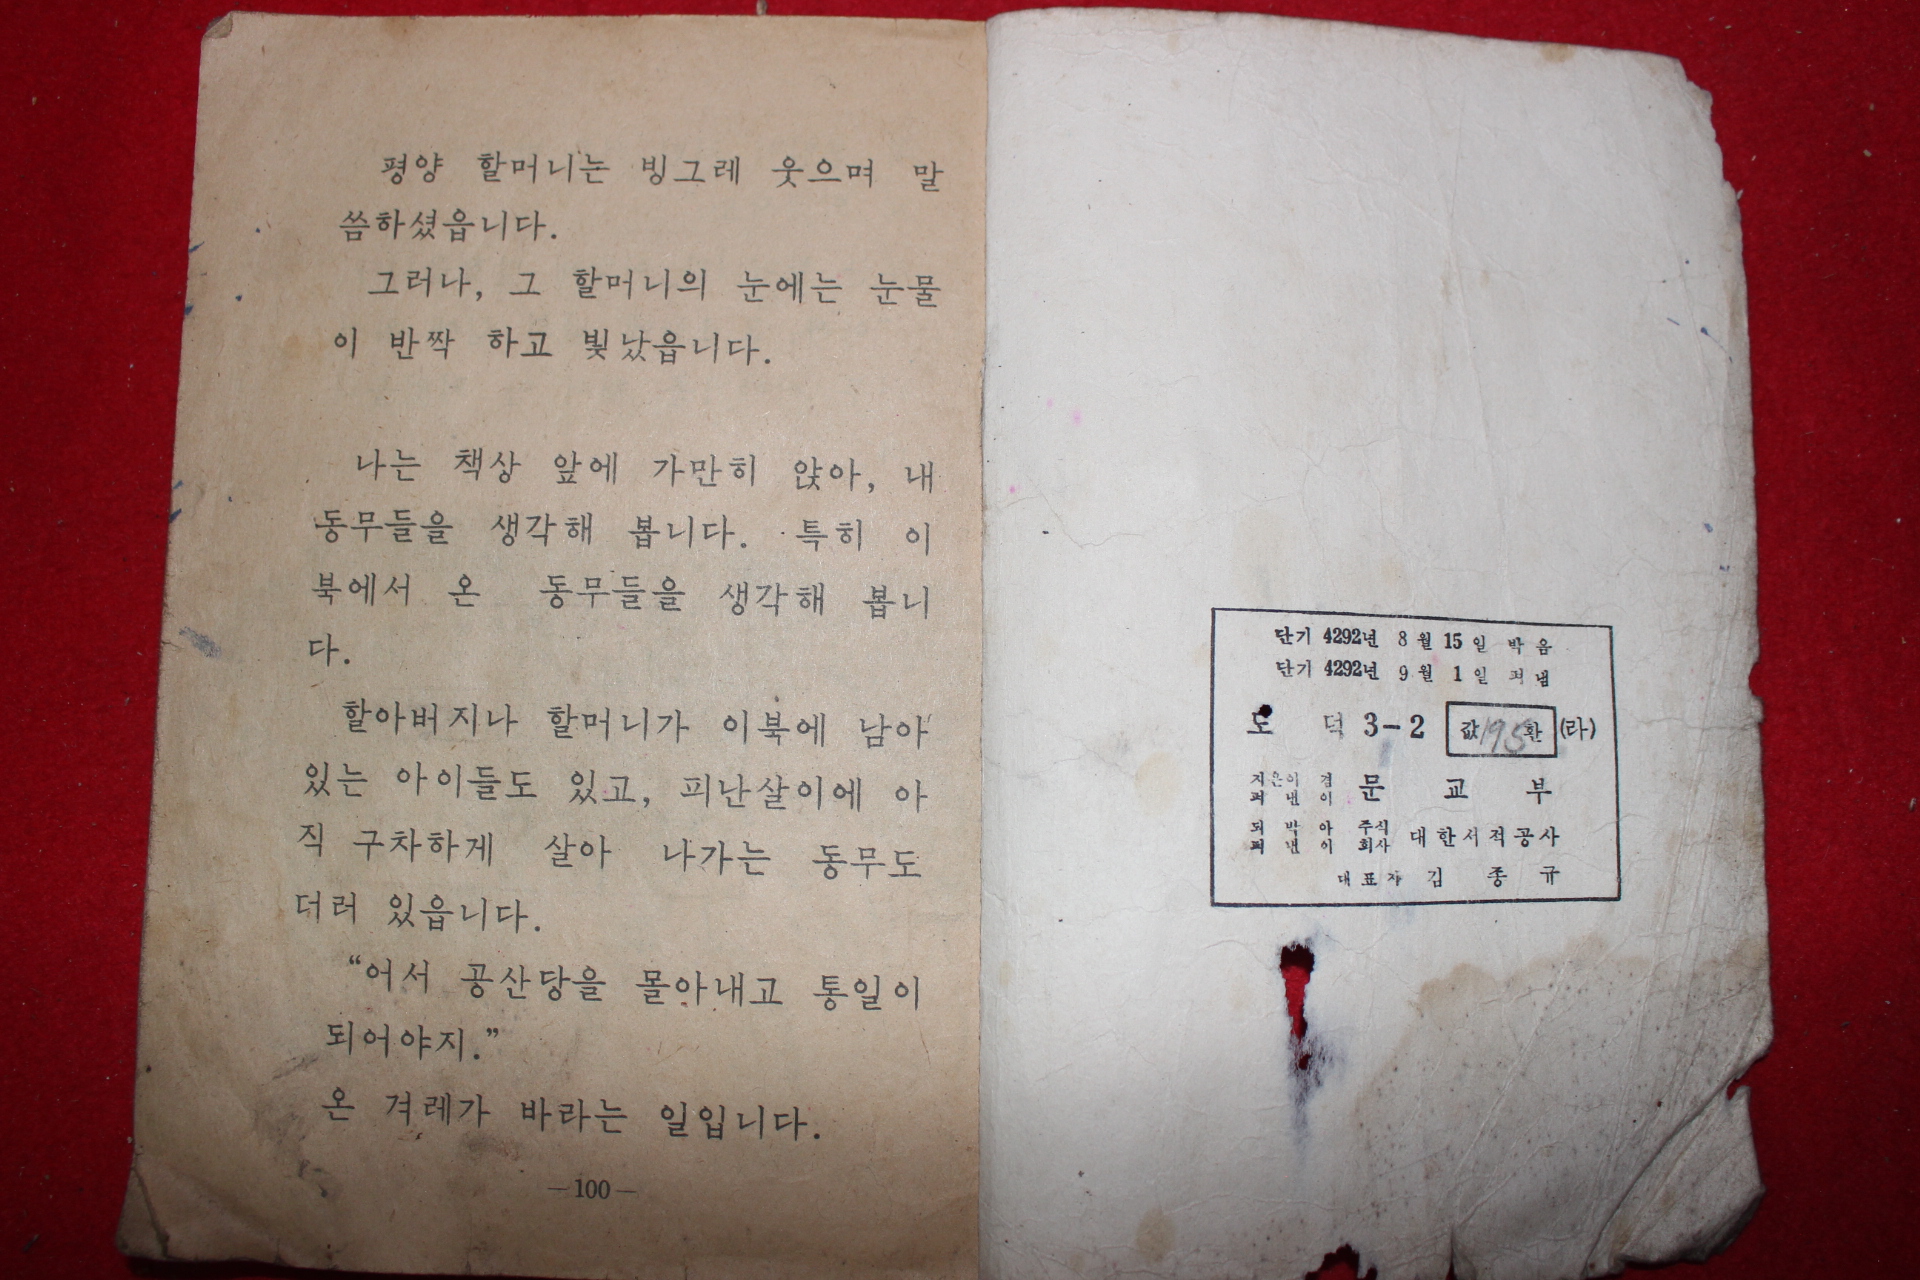 평양 할머니는 빙그레 웃으며 말
씀하셨읍니다.
그러나, 그 할머니의 눈에는 눈물
이 반짝 하고 빛났읍니다.
나는 책상 앞에 가만히 앉아, 내
동무들을 생각해 봅니다. 특히 이
북에서 온 동무들을 생각해 봅니
다.
할아버지나 할머니가 이북에 남아
있는 아이들도 있고, 피난살이에 아
직 구차하게 살아 나가는 동무도
더러 있읍니다.
“어서 공산당을 몰아내고 통일이
되어야지.”
온 겨레가 바라는 일입니다.
—100—
단기 4292년 8월 15일 박음
단기 4292년 9월 1일 펴냄
도 덕 3-2 값 195 환 (라)
지은이 겸
펴낸이 문교부
되박아
펴낸이 주식회사 대한서적공사
대표자 김종규